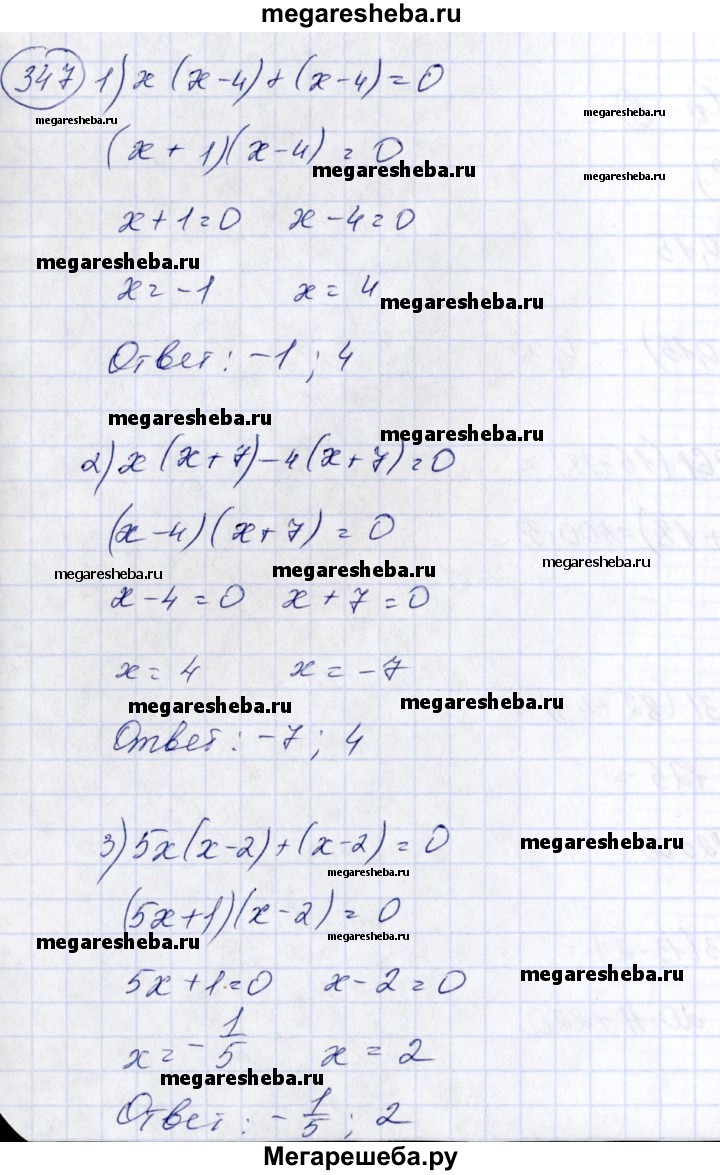 megaresheba.ru
347 1) x(x-4)+(x-4)=0
megaresheba.ru megaresheba.ru
(x+1)(x-4)=0
megaresheba.ru megaresheba.ru
x+1=0 x-4=0
megaresheba.ru
x=-1 x=4
megaresheba.ru
Ответ: -1; 4
megaresheba.ru
megaresheba.ru
2) x(x+7)-4(x+7)=0
(x-4)(x+7)=0
megaresheba.ru megaresheba.ru megaresheba.ru
x-4=0 x+7=0
x=4 x=-7
megaresheba.ru megaresheba.ru
Ответ: -7; 4
3) 5x(x-2)+(x-2)=0 megaresheba.ru
megaresheba.ru
(5x+1)(x-2)=0
megaresheba.ru megaresheba.ru
5x+1=0 x-2=0 megaresheba.ru
x=-1/5 x=2
megaresheba.ru
Ответ: -1/5; 2
Мегарешеба.ру